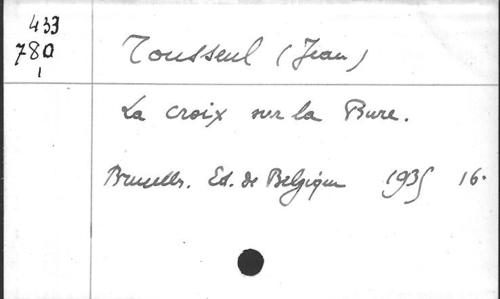 433
780
1
Tousseul (Jean)
La croix sur la Bure.
Bruxelles. Ed. de Belgique 1935 16.